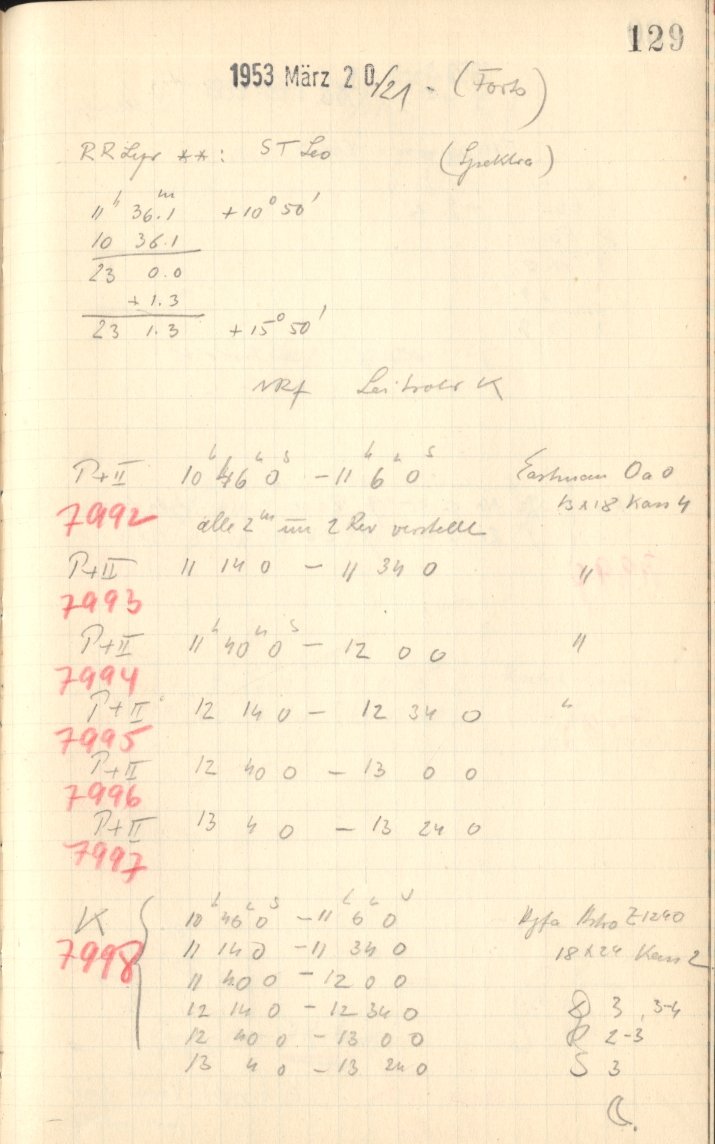 129
1953 März 20/21 - (Forts)
RR Lyr **: ST Leo (Spektra)
11h 36.1m +10° 50'
10 36.1
23 0.0
+ 1.3
23 1.3 +15° 50'
Leitrohr K
P+II 10h 46m 0s - 11h 6m 0s Eastman OaO
13x18 Kass 4
7992 alle 2m um 2 Rev verstellt
P+II 11 14 0 - 11 34 0 "
7993
P+II 11h 40m 0s - 12 0 0 "
7994
P+II 12 14 0 - 12 34 0 "
7995
P+II 12 40 0 - 13 0 0
7996
P+II 13 4 0 - 13 24 0
7997
K 10h 46m 0s - 11h 6m 0s Agfa Astro Z1240
7998 11 14 0 - 11 34 0 18x24 Kass 2
11 40 0 - 12 0 0
12 14 0 - 12 34 0 3, 3-4
12 40 0 - 13 0 0 R 2-3
13 4 0 - 13 24 0 S 3